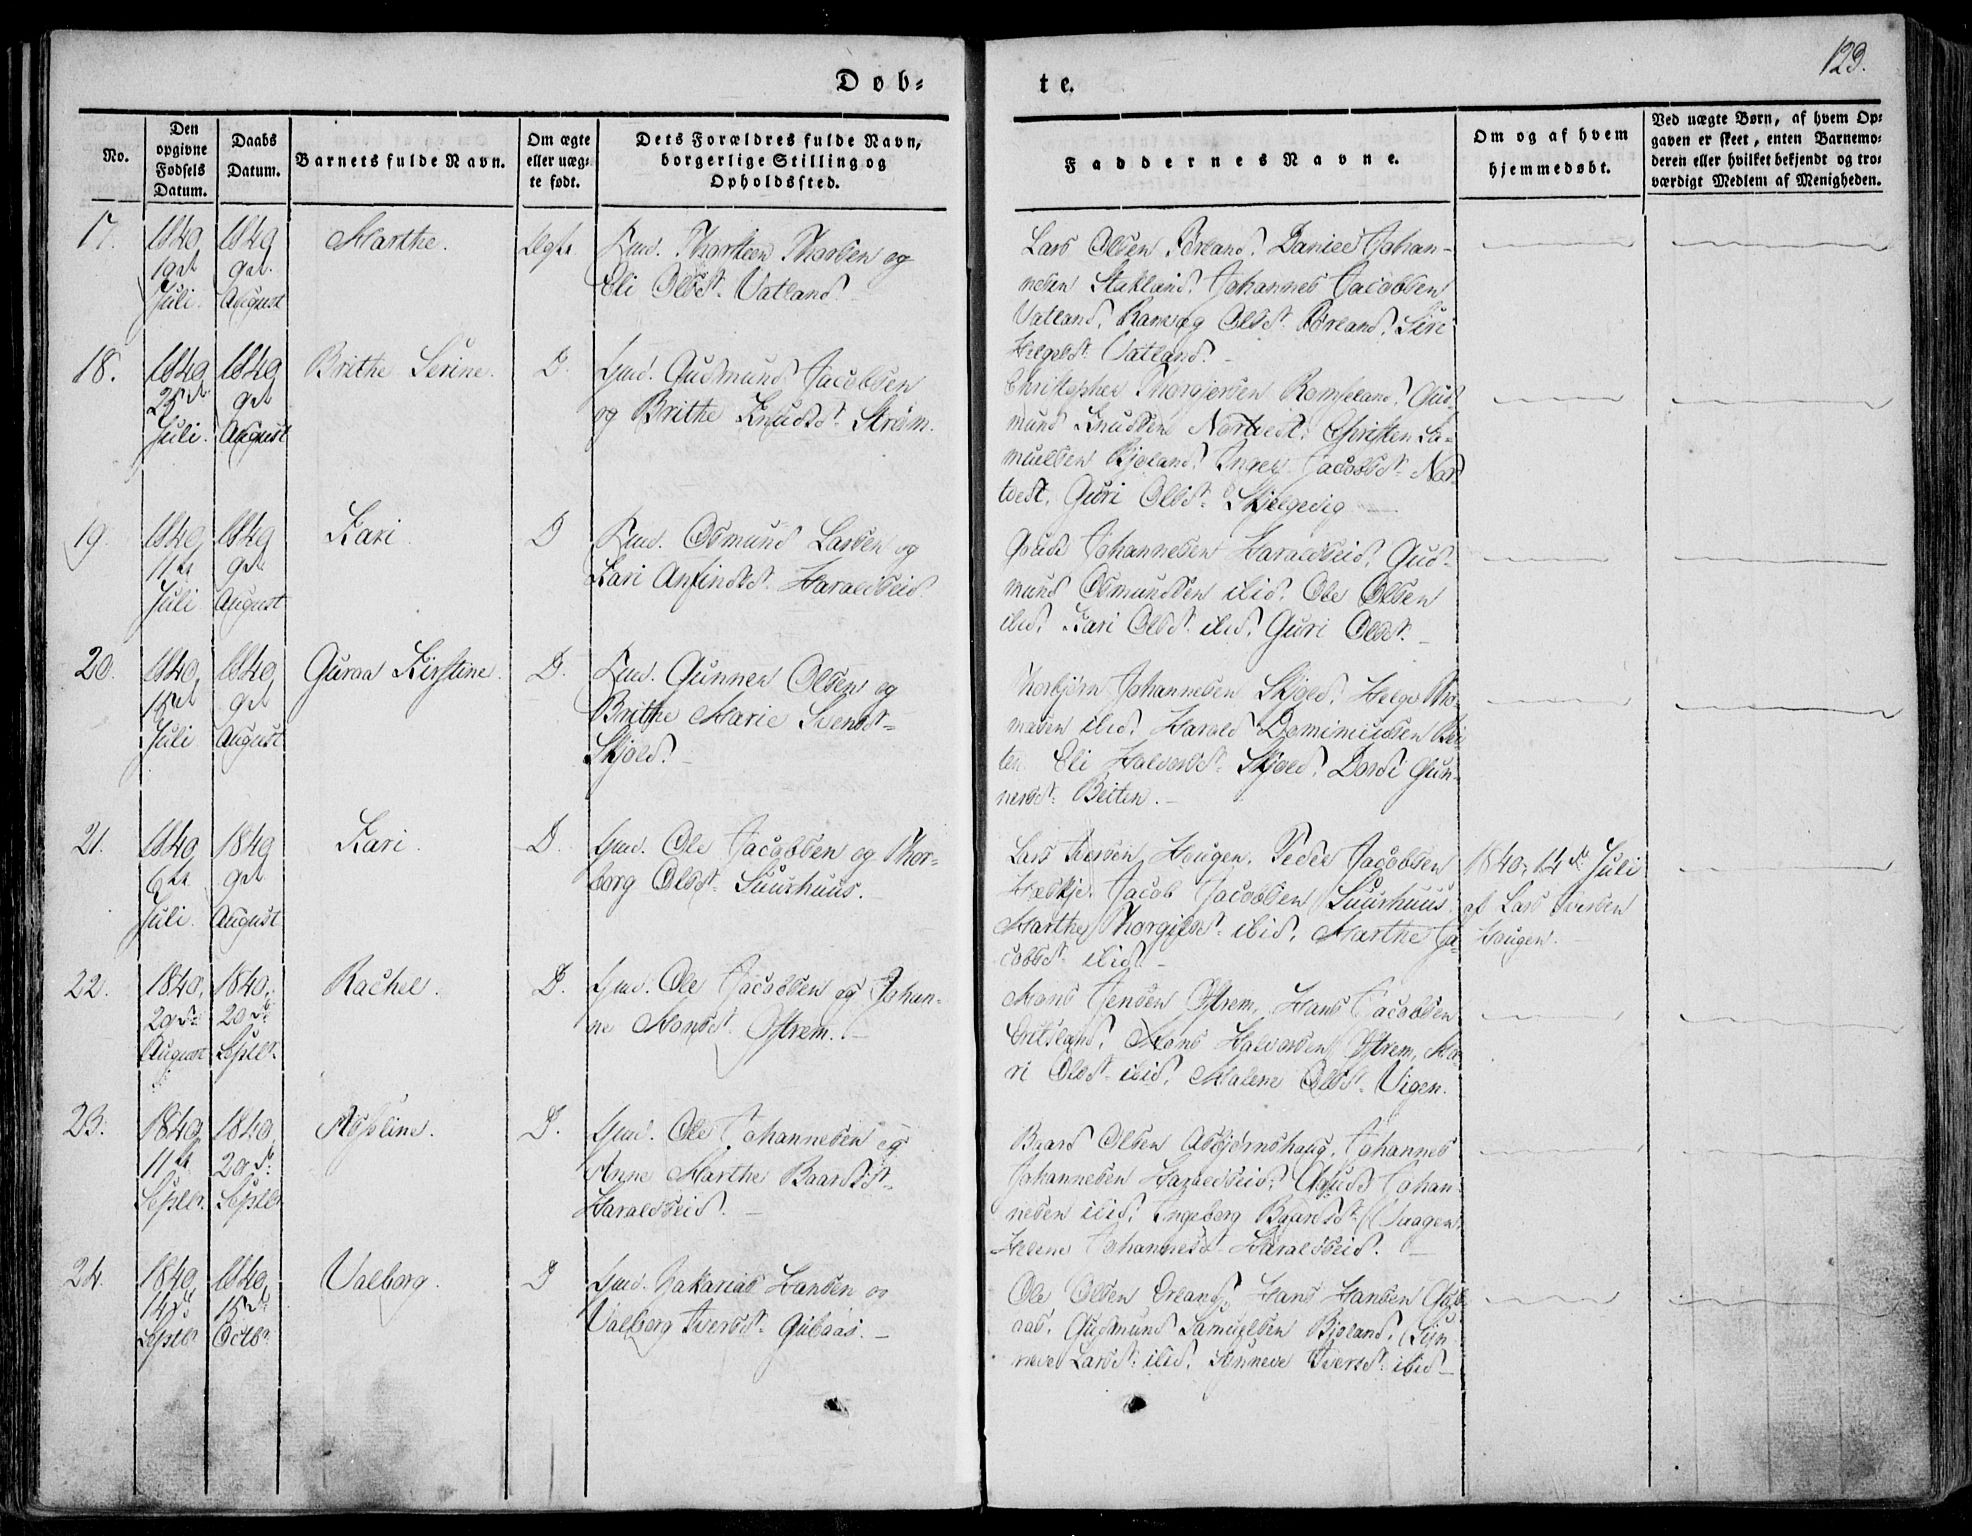 Døb-
te.
123.
No.
Den opgivne Fødsels Datum.
Daabs Datum.
Barnets fulde Navn.
Om ægte eller uæg-te født.
Dets Forældres fulde Navn, borgerlige Stilling og Opholdssted.
Faddernes Navne.
Om og af hvem hjemmedøbt.
Ved uægte Børn, af hvem Op-gaven er skeet, enten Barnemo-deren eller hvilket bekjendt og tro-værdigt Medlem af Menigheden.
17.
1840
Juli.
1840
9de
August
Marthe.
Ægte
Thorsteen
og
Eli Olsdt. Vatland.
Lars Olsen Førland, Daniel Johan-
nesen Stakland, Johannes Jacobsen
Vatland, Olsdt. Førland, Siri
Helgesdt. Vatland.
18.
1840
25de
Juli.
1840
9de
August
Brithe Serine.
D.
Gmd. Gudmund Jacobsen
og Brithe Knudsdt. Strøm.
Christopher Thorgiersen Ramsland, Gud-
mund Knudsen Nortvedt, Christen Sa-
muelsen Bjoland, Inger Jacobsdt. Nor-
tvedt, Guri Olsdt. Skjelgevig
19.
1840
11te
Juli
1840
9de
August
Kari.
D
Osmund Larsen og
Kari Anfindsdt. Haraldseid.
Johannesen Haraldseid, Gud-
mund Osmundsen ibid, Ole Olsen
ibid, Kari Olsdt. ibid, Guri Olsdt.
20.
1840
15de
Juli
1840
9de
August
Guroa Kirstine.
D.
Gunner Olsen og
Brithe Marie Svendsdt.
Skjold.
Thorbjørn Johannesen Skjold, Helge Tho-
masen ibid, Harald
Eli Halvorsdt. Skjold, Dordi Gun-
nersdt. Beiten.
21.
1840
6te
Juli.
1840
9de
August
Kari.
D.
Gmd. Ole Jacobsen og Thor-
borg Olsdt. Suurhuus.
Lars Iversen Hougen, Peder Jacobsen
Jacob Jacobsen Suurhuus,
Marthe Thorgilsdt. ibid, Marthe Ja-
cobsdt. ibid.
1840, 14de Juli
af Lars Iversen
Hougen.
22.
1840,
August
1840,
20de
Septbr.
Rachel.
D.
Gmd. Ole Jacobsen og Johan-
ne Monsdt. Østrem.
Mons Jensen Østrem, Hans Jacobsen
Mons Halvorsen Østrem, Ma-
ri Olsdt. ibid, Malene Olsdt. Vigen.
23.
1840
11te
Septbr.
1840
20de
Septbr
Absoline.
D.
Gmd. Ole Johannesen og
Anne Marthe Baardsdt.
Haraldseid.
Baard Olsen Asbjørnshaug, Johannes
Johannesen Haraldseid, Johan-
nesen ibid, Ingeborg Baardsdt.
Helene Johannesdt. Haraldseid.
24.
1840
14de
Septbr
1840
Octbr.
Valborg.
D
Gmd. Zakarias Hansen og
Valborg Iversdt. Gubaas.
Ole Olsen Hans Hansen Gub-
aas, Gudmund Samuelsen Bjoland, Syn-
neve Larsdt. ibid, Synneve Iversdt. ibid